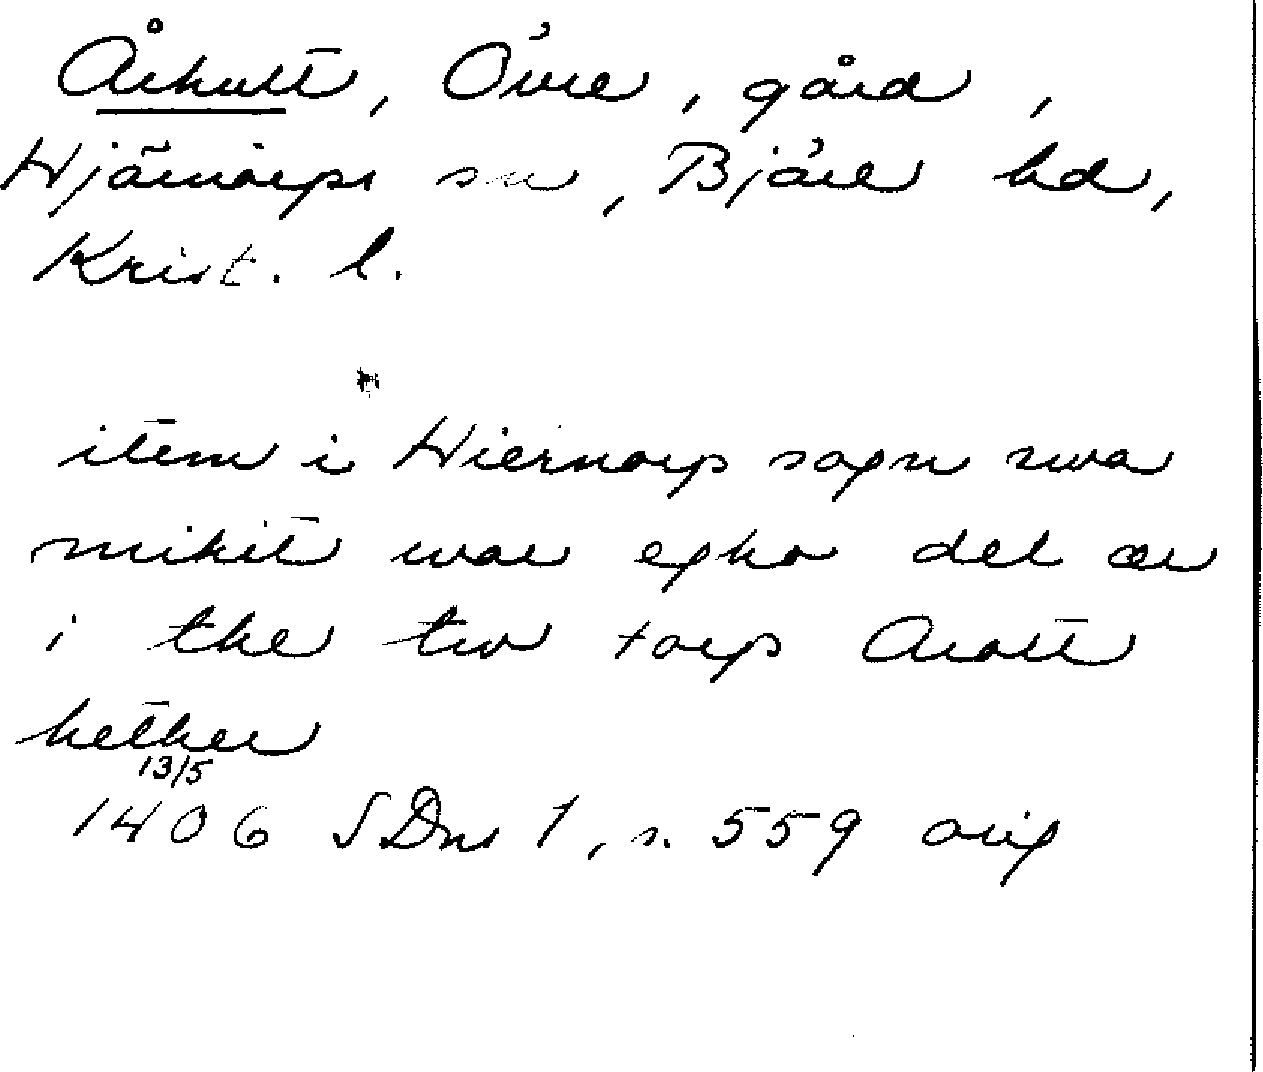 Århult, Övre, gård,
Hjärnarps sn, Bjäre hd,
Krist. l.
item i Hiernarp sogn swa
mikit war egho del ær
i the tw torp Arott
hether
13/5
1406 SDns 1, s. 559 orig